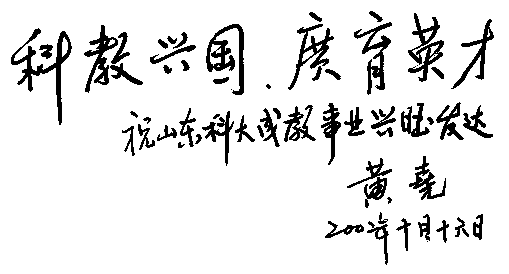 科教兴国、廣育英才
祝山东科大成教事业兴旺发达
黄尧
2002年十月十六日